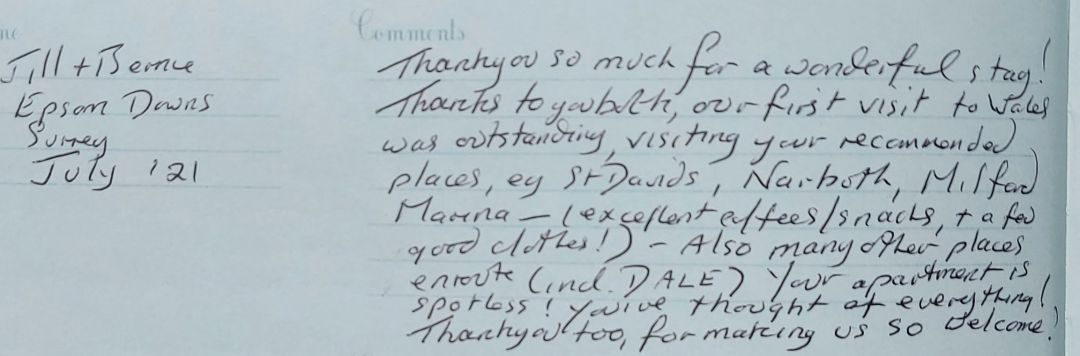 me
Comments
Jill + Bernie
Epsom Downs
Surrey
July '21
Thankyou so much for a wonderful stay!
Thanks to you both, our first visit to Wales
was outstanding, visiting your recommended
places, eg St Davids, Narboth, Milford
Marina – (excellent coffees/snacks, + a few
good clothes!) – Also many other places
enroute (incl. DALE) Your apartment is
spotless! You've thought of everything!
Thankyou too, for making us so welcome!